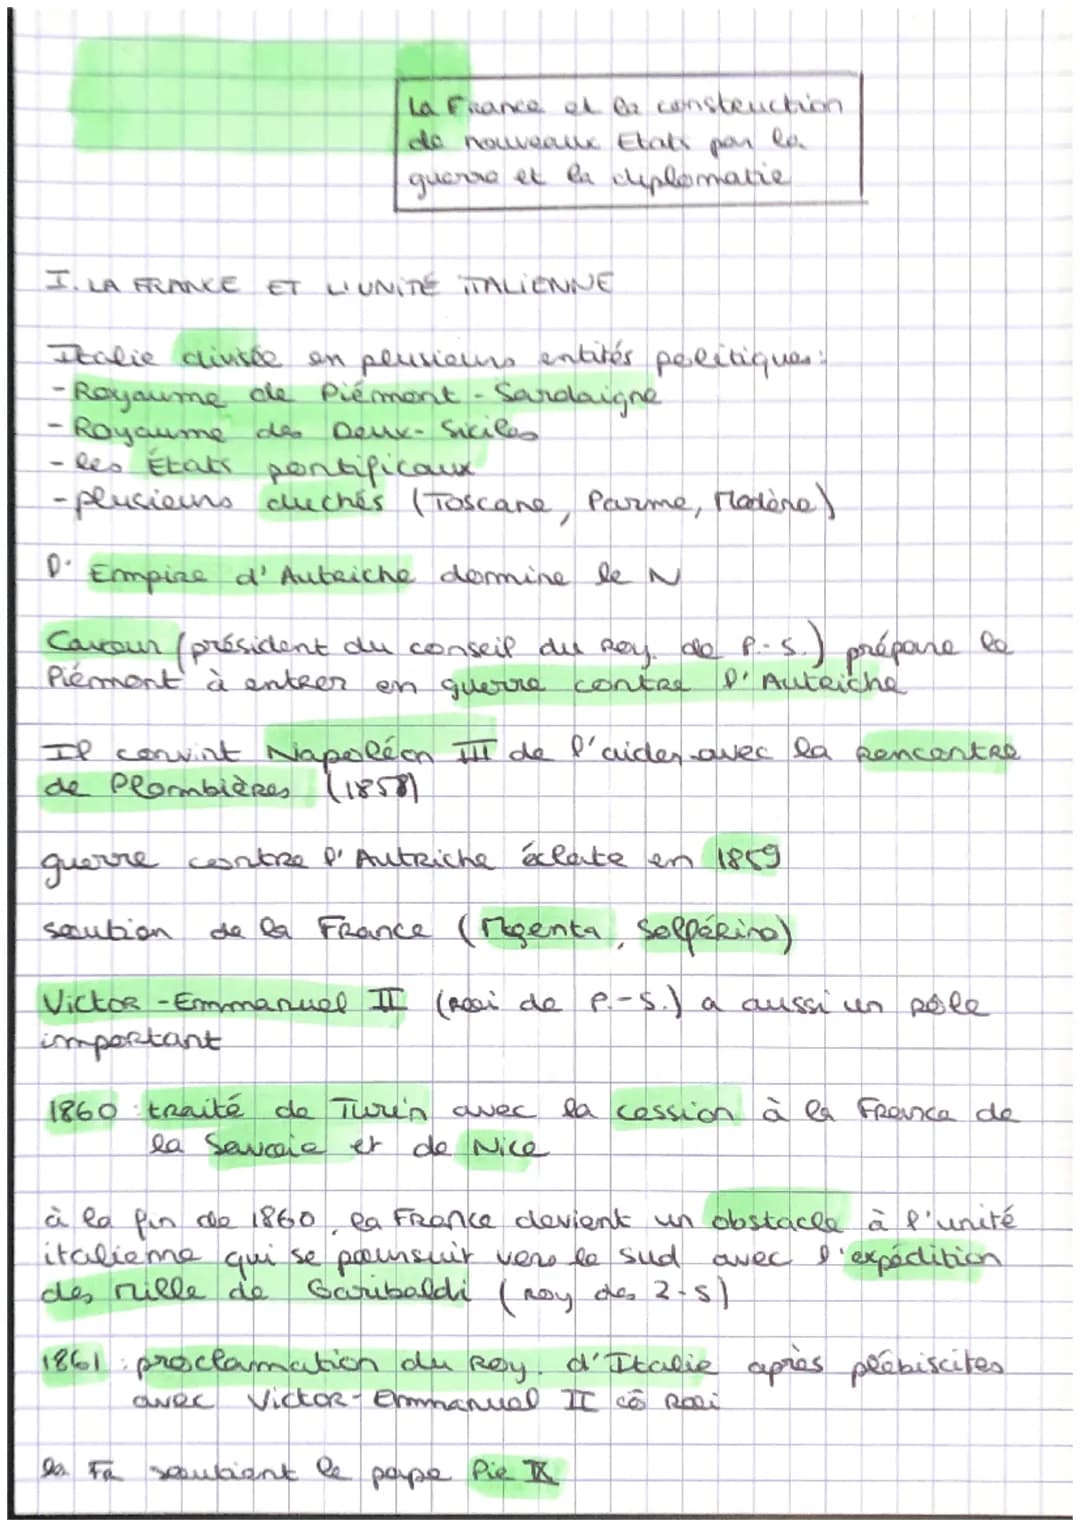 La France et la construction
de nouveaux Etats par la
guerre et la diplomatie
I. LA FRANCE ET L'UNITÉ ITALIENNE
Italie divisée en plusieurs entités politiques:
- Royaume de Piémont - Sardaigne
- Royaume des Deux-Siciles
- les États pontificaux
- plusieurs duchés (Toscane, Parme, Modène)
l'Empire d'Autriche domine le N
Cavour (président du conseil du Roy. de P.-S.) prépare le
Piémont à entrer en guerre contre l'Autriche
Il convint Napoléon III de l'aider avec la rencontre
de Plombières (1858)
guerre contre l'Autriche éclate en 1859
soution de la France (Magenta, Solférino)
Victor-Emmanuel II (roi de P.-S.) a aussi un rôle
important
1860 : traité de Turin avec la cession à la France de
la Savoie et de Nice
à la fin de 1860, la France devient un obstacle à l'unité
italienne qui se poursuit vers le sud avec l'expédition
des mille de Garibaldi (roy des 2-S)
1861 : proclamation du Roy. d'Italie après plébiscites
avec Victor-Emmanuel II cô Roi
la Fa soutient le pape Pie IX